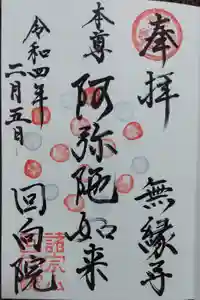 奉拝
無縁寺
本尊
阿弥陀如来
令和四年
二月五日
回向院